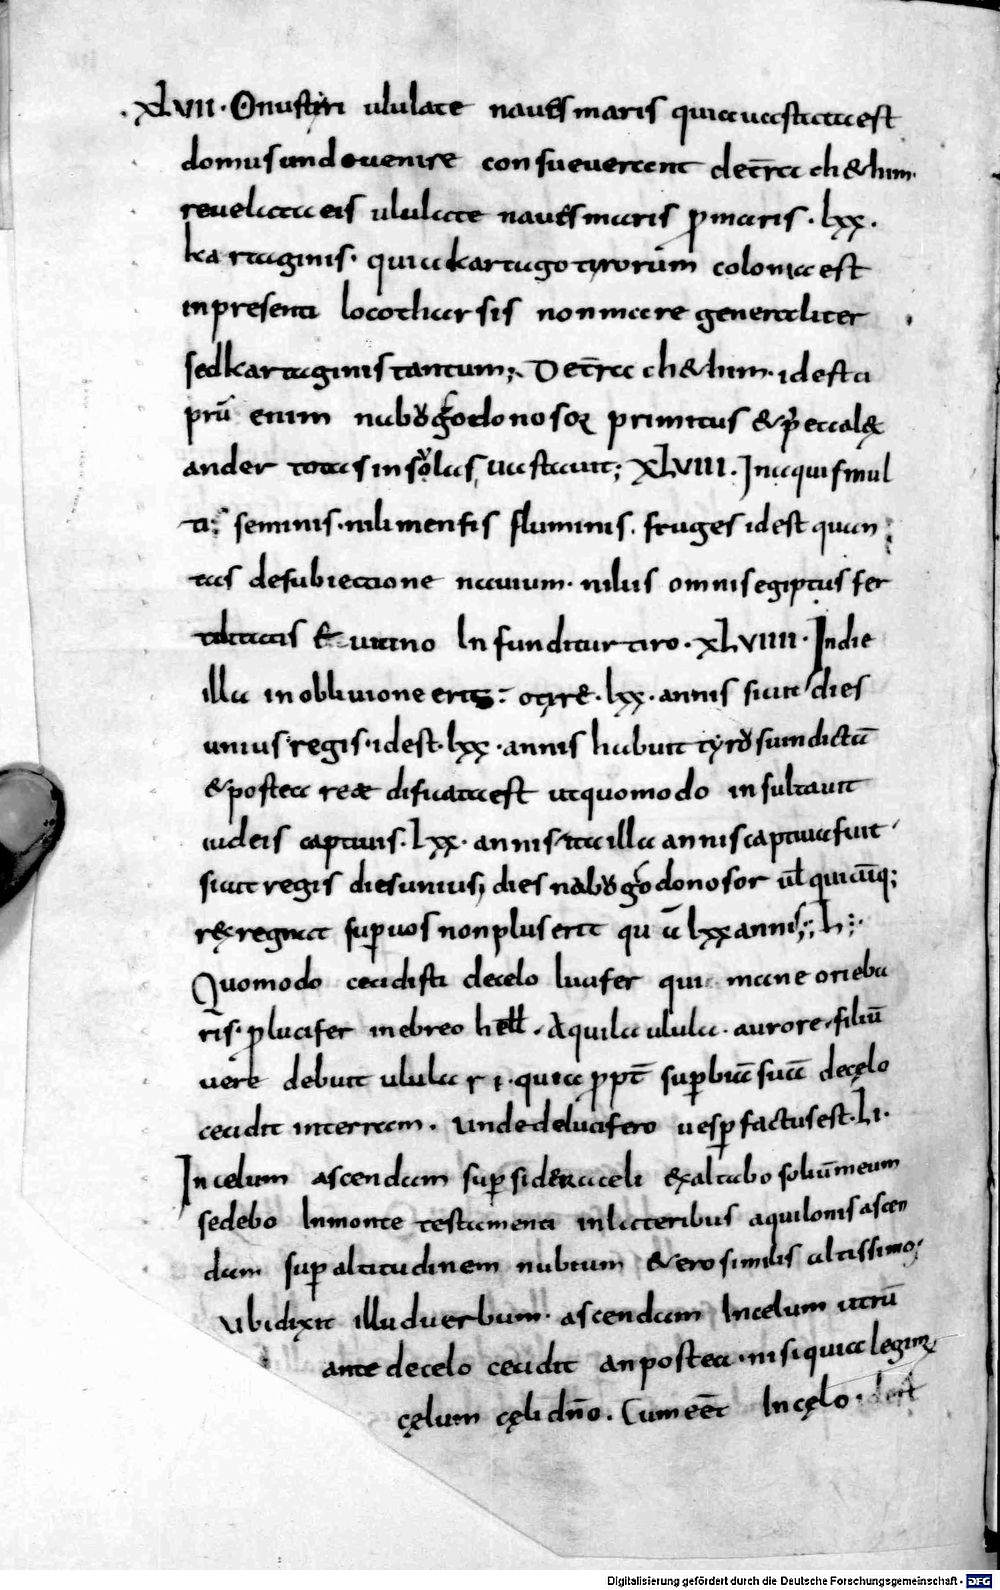 .XLVII. Onustyri ululate naues maris quia uastata est
domus unde uenire consueuerant de t̄rra ch&him.
reuelata eis ululate naues maris p̱ maris. lxx.
kartaginis. quia kartago tyrorum colonia est
in presenti loco tharsis non mare generaliter
sed kartaginis tantum; De t̄rra ch&him. id est a
prū enim nabugodonosor primitus & p̱ ea alex
ander totas insolas uastauit; XLVIII. In aquis mul
tis seminis. nili mensis fluminis. fruges id est quan
tas de subiectione nauium. nilus omnis egiptus fer
Et uicino Infunditur tiro. XLVIIII. In die
illa in obliuione eris: o tyre. lxx. annis sicut dies
unius regis. id est. lxx. annis habuit tyrus sum dictū
& postea reae difuata est ut quomodo insultauit
iudeis captiuis. lxx. annis ita illa annis captiua fuit
sicut regis dies unius; dies nabugodonosor ul̄ quicūq;
rex regnat sup̱ uos non plus erit qu ā lxx annis; L;
Quomodo cecidisti de celo lucifer qui mane orieba
ris. p̱ lucifer in ebreo hell̄. Aquila ulula. aurore. filiū
uere debuit ululari. quia p̱pt̄ sup̱biā suā de cęlo
cecidit in terram. Unde de lucifero uesp̱ factus est. LI.
In celum ascendam sup̱ sidera celi exaltabo soliū meum
sedebo In monte testamenti in lateribus aquilonis ascen
dam sup̱ altitudinem nubium & ero similis altissimo;
Ubi dixit illud uerbum. ascendam In celum utrū
ante de celo cecidit an postea. nisi quia legim;
cęlum cęli dn̄o. Cum eēt In cęlo. dicit
Digitalisierung gefördert durch die Deutsche Forschungsgemeinschaft - DFG